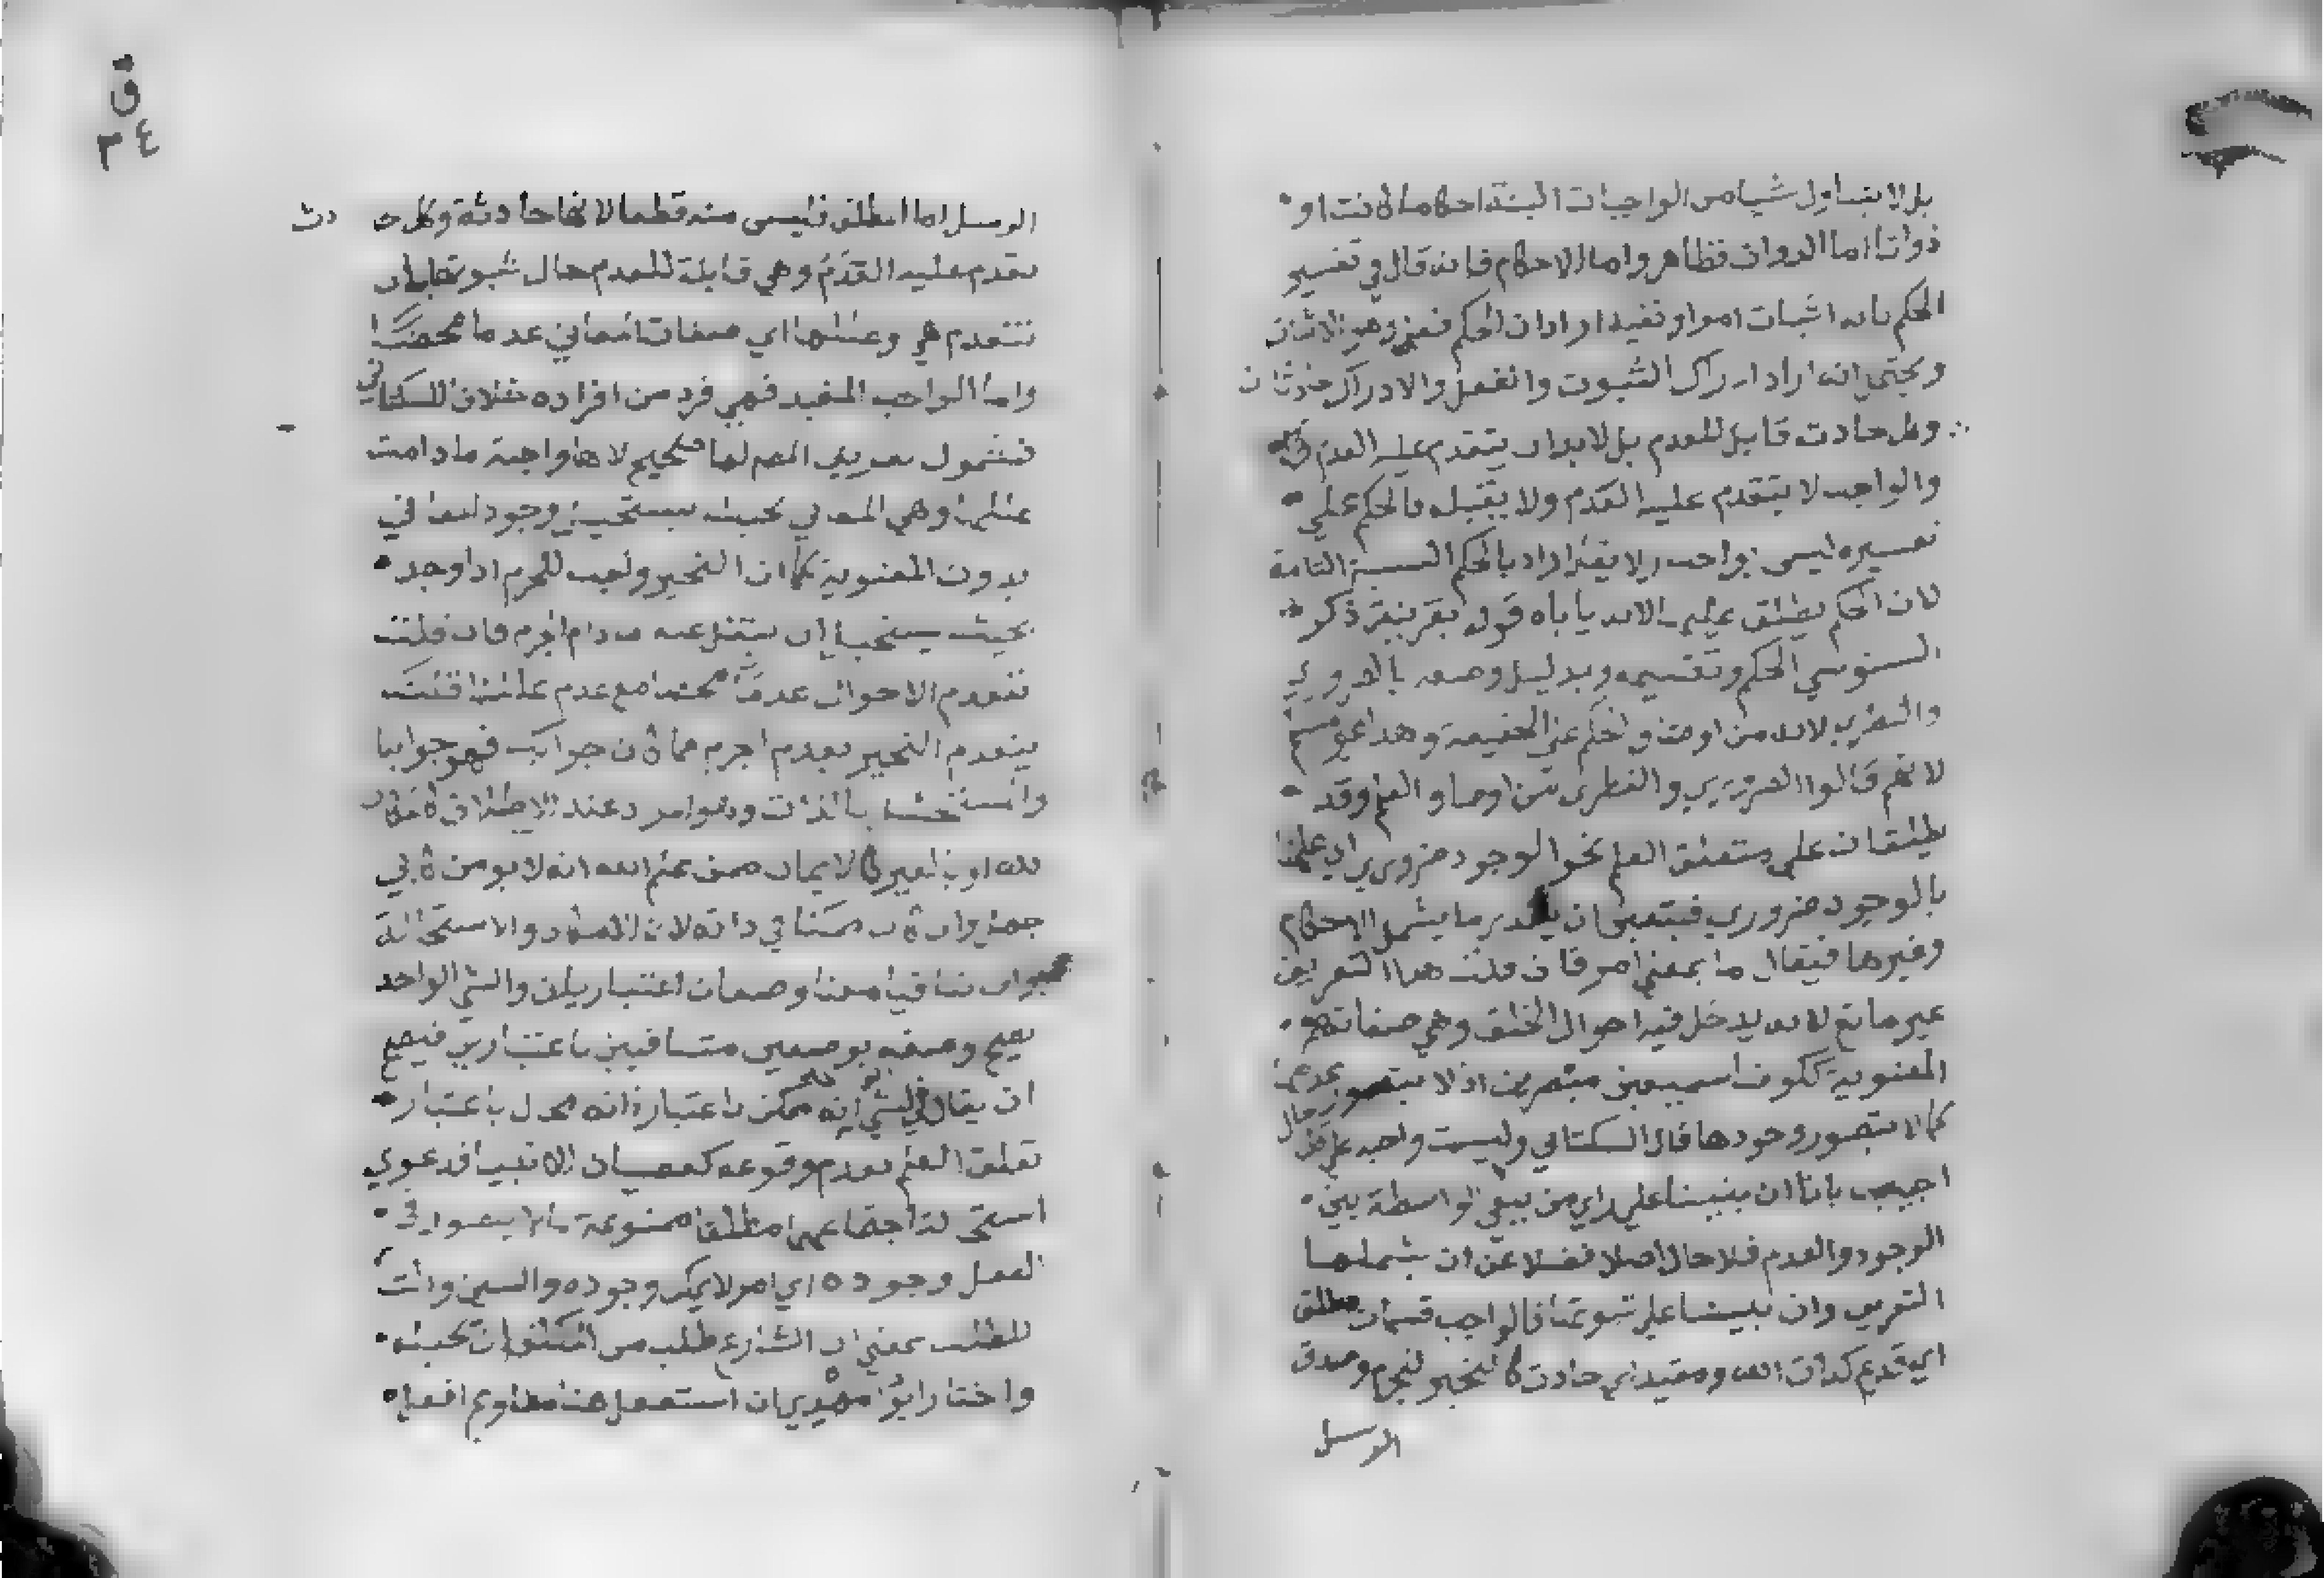 بل لا يتناول شيا من الواجبات البتة احكاما كانت او
ذواتا اما الذوات فظاهر واما الاحكام فلانه قال في تفسير
الحكم بانه اثبات امر او نفيه او ادان الحكم فعل وهو الاثبات
ويحتمل انه اراد ادراك الثبوت والفعل والادراك حادثان
وكل حادث قابل للعدم بل لابد ان يتقدم عليه العدم
والواجب لا يتقدم عليه العدم ولا يقبله فالحكم علي
تفسيره ليس بواجب ولا يقال اراد بالحكم النسبة التامة
لان الحكم يطلق عليها لانه ياباه قوله بقرينة ذكر
السنوسي الحكم وتقسيمه وبدليل وصفه بالضروري
والنظري لانه من اوصاف الحكم علي الحقيقة وهذا غير مسلم
لانهم قالوا الضروري والنظري من اوصاف العلم وقد
يطلقان علي متعلق العلم نحو الوجود ضروري اي علمنا
بالوجود ضروري فيتعين ان يفسر بما يشمل الاحكام
وغيرها فيقال ما بمعني امر فان قلت هذا التعريف
غير مانع لانه يدخل فيه احوال الخلق وهي صفاتهم
المعنوية ككون اسميعين مبصرين اذ لا يتصور عدمها
كما لا يتصور وجودها قال السكتاني وليست واجبه علي كل حال
اجيب بانا ان بنينا علي راي من ينفي الواسطة بين
الوجود والعدم فلا حال اصلا فضلا عن ان يشملها
التعريف وان بنينا علي ثبوتها فالواجب قسمان مطلق
اي قديم كذات الله ومقيد اي حادث كالتحيز للجرم وصدق
الرسل
ق
٣٤
الرسل اما المطلق فليس منه قطعا لانها حادثة وكل حادث
يتقدم عليه العدم وهي قابلة للعدم حال ثبوتها بان
تنعدم هي وعللها اي صفات المعاني عدما محضا
واما الواجب المقيد فهي فرد من افراده خلافا للسكتاني
فشمول تعريف المص لها صحيح لانها واجبة ما دامت
عللها وهي المعاني بحيث يستحيل وجود المعاني
بدون المعنوية كما ان التحيز واجب للجرم اذا وجد
بحيث يستحيل ان ينتقل عنه ما دام الجرم فان قلت
تنعدم الاحوال عدما محضا مع عدم عللها قلت
ينعدم التحيز بعدم الجرم فما كان جوابك فهو جوابنا
والمستحيل بالذات وهو المراد عند الاطلاق
لله او بالغير كالايمان ممن علم الله انه لا يومن كابي
جهل وان كان ممكنا في ذاته لان الامكان والاستحالة
وان تنافيا معنا وصفان اعتباريان والشي الواحد
يصح وصفه بوصفين متنافيين باعتبارين فيصح
ان يقال في الشي انه ممكن باعتبار ذاته محال باعتبار
تعلق العلم بعدم وقوعه كعصيان الانبيا فدعوي
استحالة اجتماعهما مطلقا ممنوعة ما لا يتصور في
العقل وجوده اي امر لا يمكن وجوده والسين والتا
للطلب بمعني ان الشارع طلب من المكلف ان يحيله
واختار ابو مهدي ان استفعل هنا مطاوع افعل